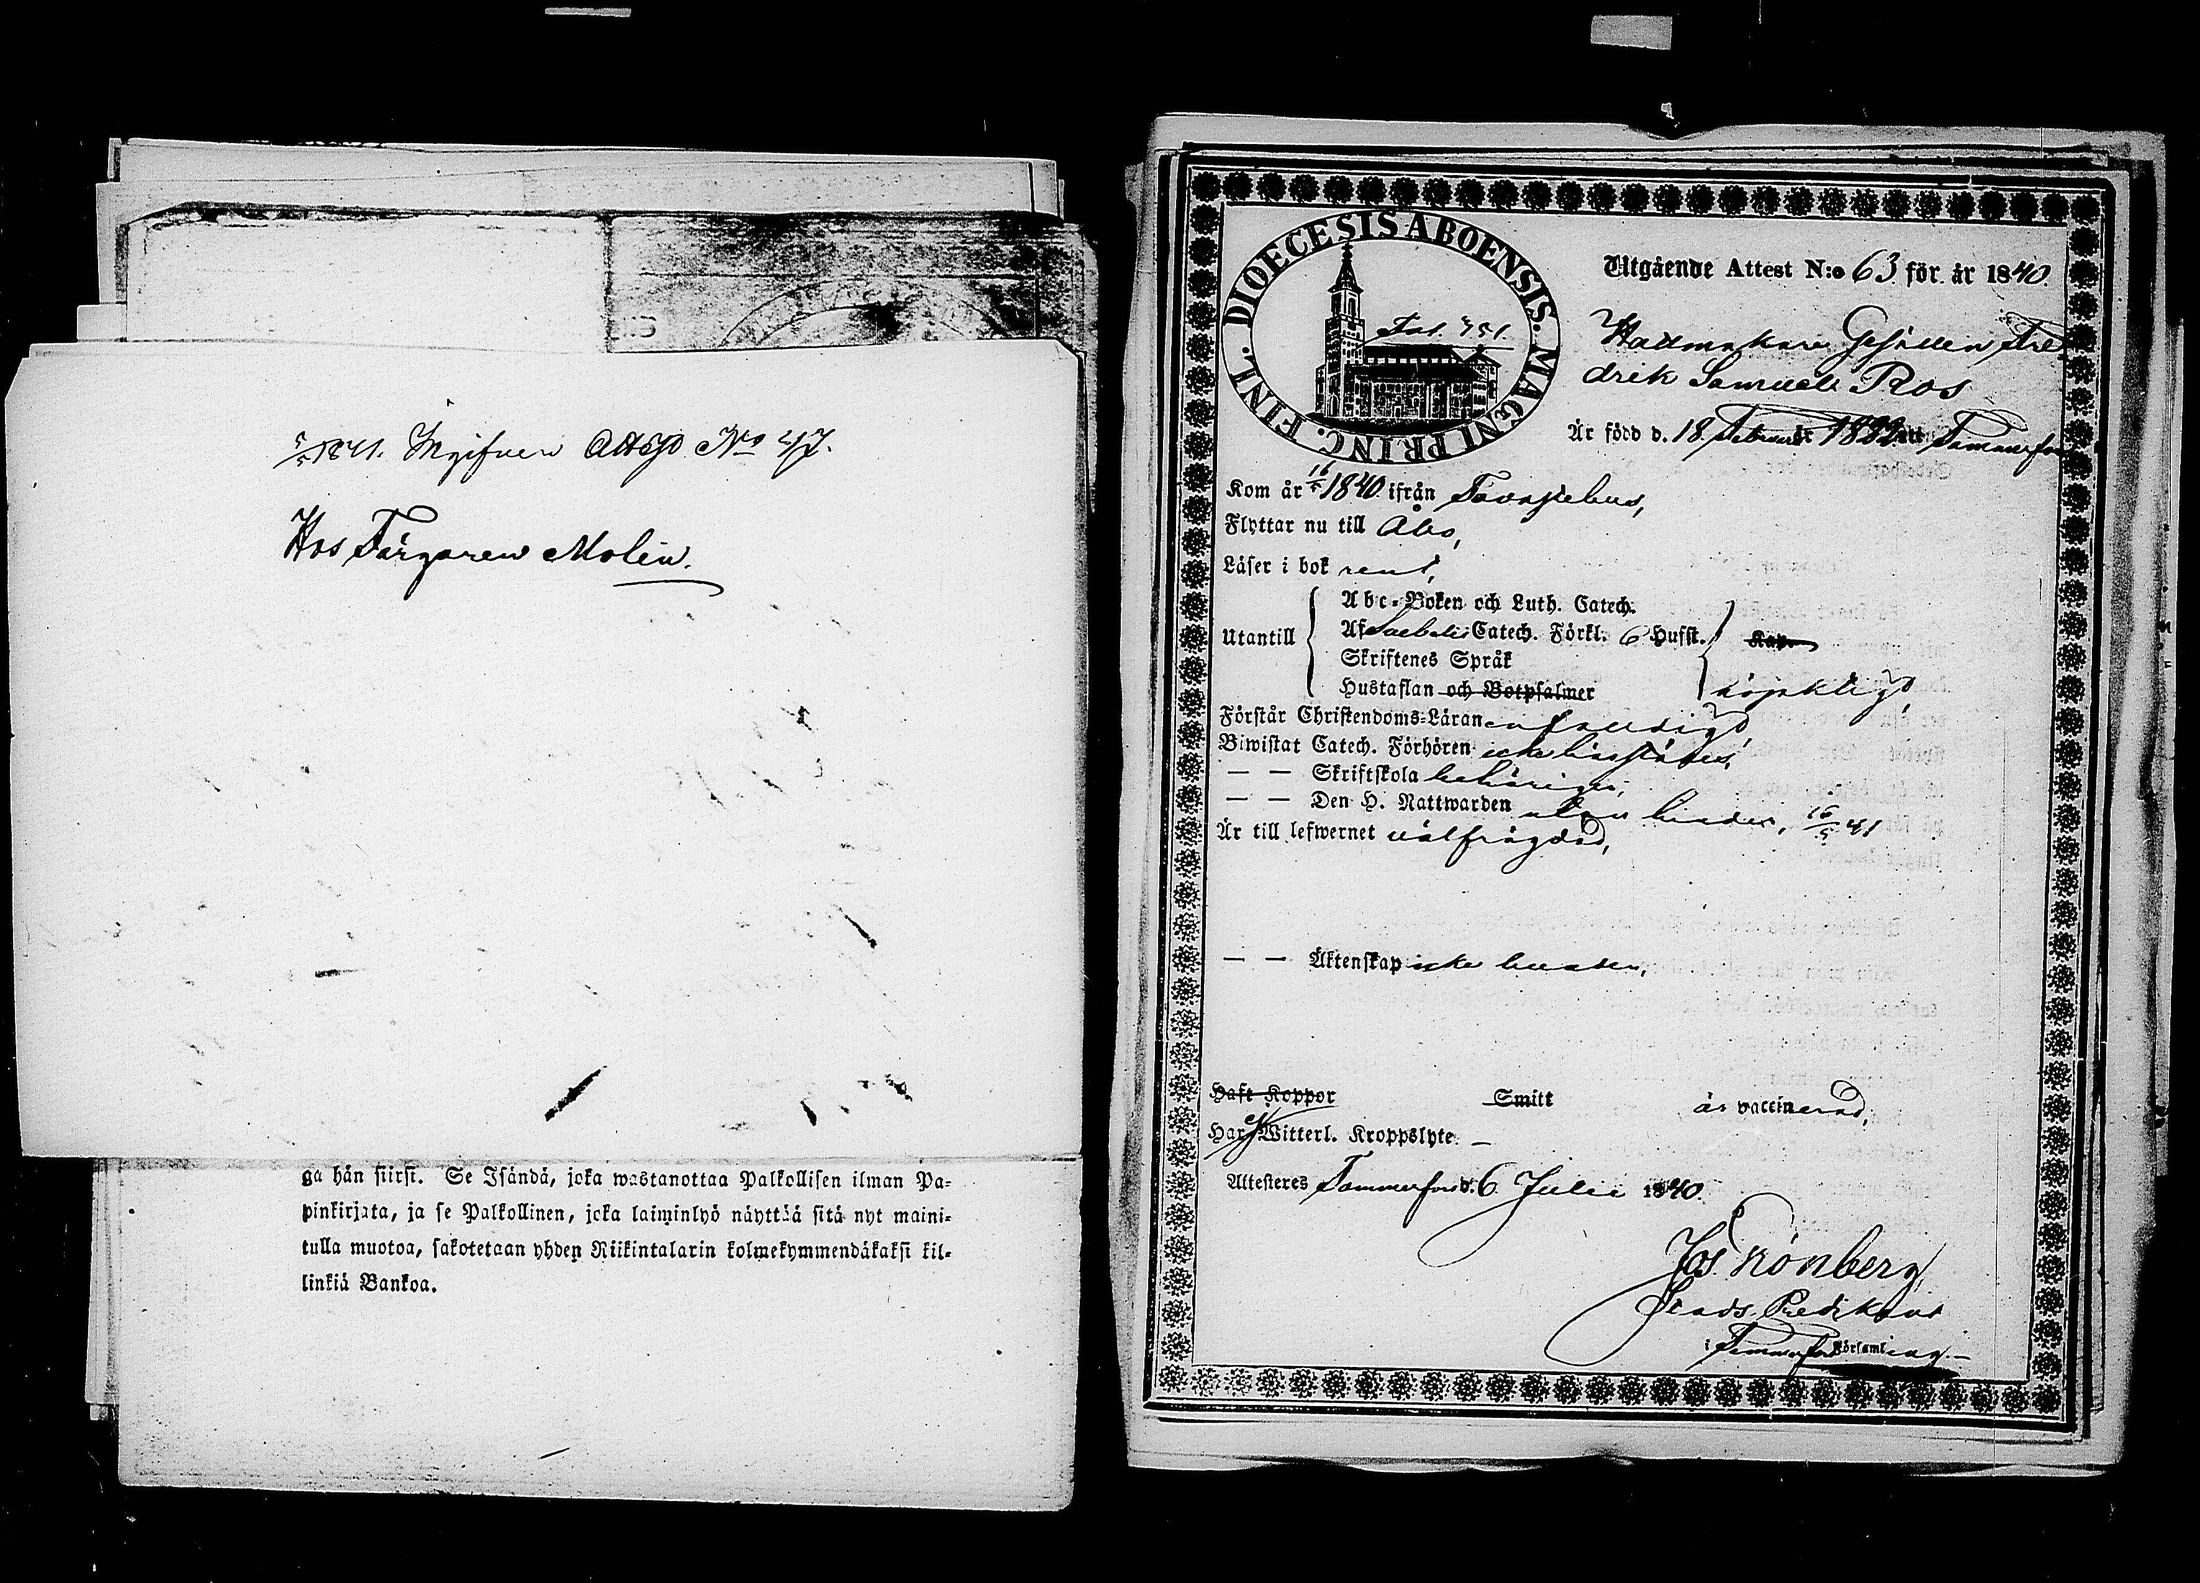 1841. Ingifven Attest No 47.
Hos Färgaren Molin.
ga hän siirsi. Se Isändä, joka wastanottaa Palkollisen ilman Pa-
pinkirjata, ja se Palkollinen, joka laiminlyö näyttää sitä nyt maini-
tulla muotoa, sakotetaan yhden Riikintalarin kolmekymmendäkaksi kil-
linkiä Bankoa.
DIOECESIS ABOENSIS. MAGNI PRINC. FINL.
Utgående Attest N:o 63 för år 1840.
Hattmakare Gesällen Fre
drik Samuel Ros
Är född d. 18 Februari Tammerfors
Kom år 16/5 1840 ifrån Tavastehus,
Flyttar nu till Åbo,
Läser i bok rent,
Utantill
Abc-Boken och Luth. Catech.
Af Catech. Förkl. 6 Hufst. Kap.
Skriftenes Språk
Hustaflan och Botpsalmer
Förstår Christendoms-Läran
Biwistat Catech. Förhören
— — Skriftskola behörigen,
— — Den H. Nattwarden utan hinder, 16/5 41
Är till lefwernet välfrägdad,
— — Äktenskap icke bunden,
Haft Koppor Smitt är vaccinerad,
Har Witterl. Kroppslyte —
Attesteres Tammerfors d. 6 Julii 1840.
Jos Grönberg
Stads Predikant
i Tammerfors Församling —